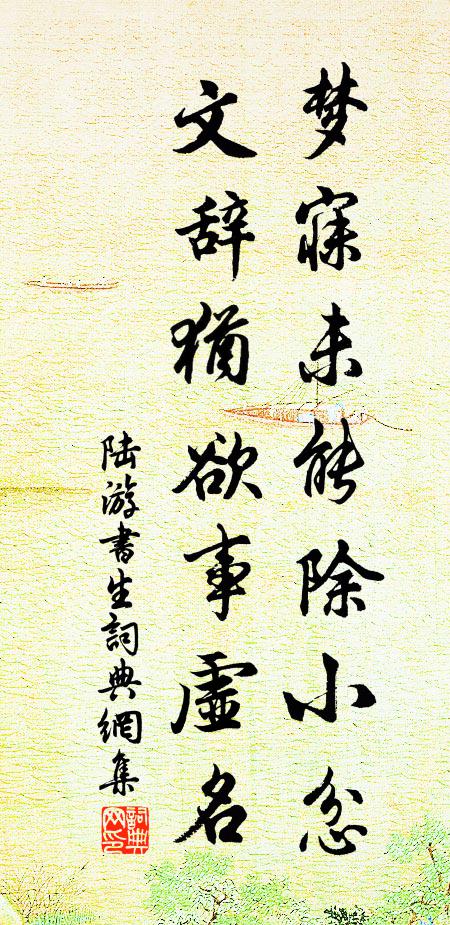 梦寐未能除小忿
文辞犹欲事虚名
陆游書生詞典網集
詞典网印